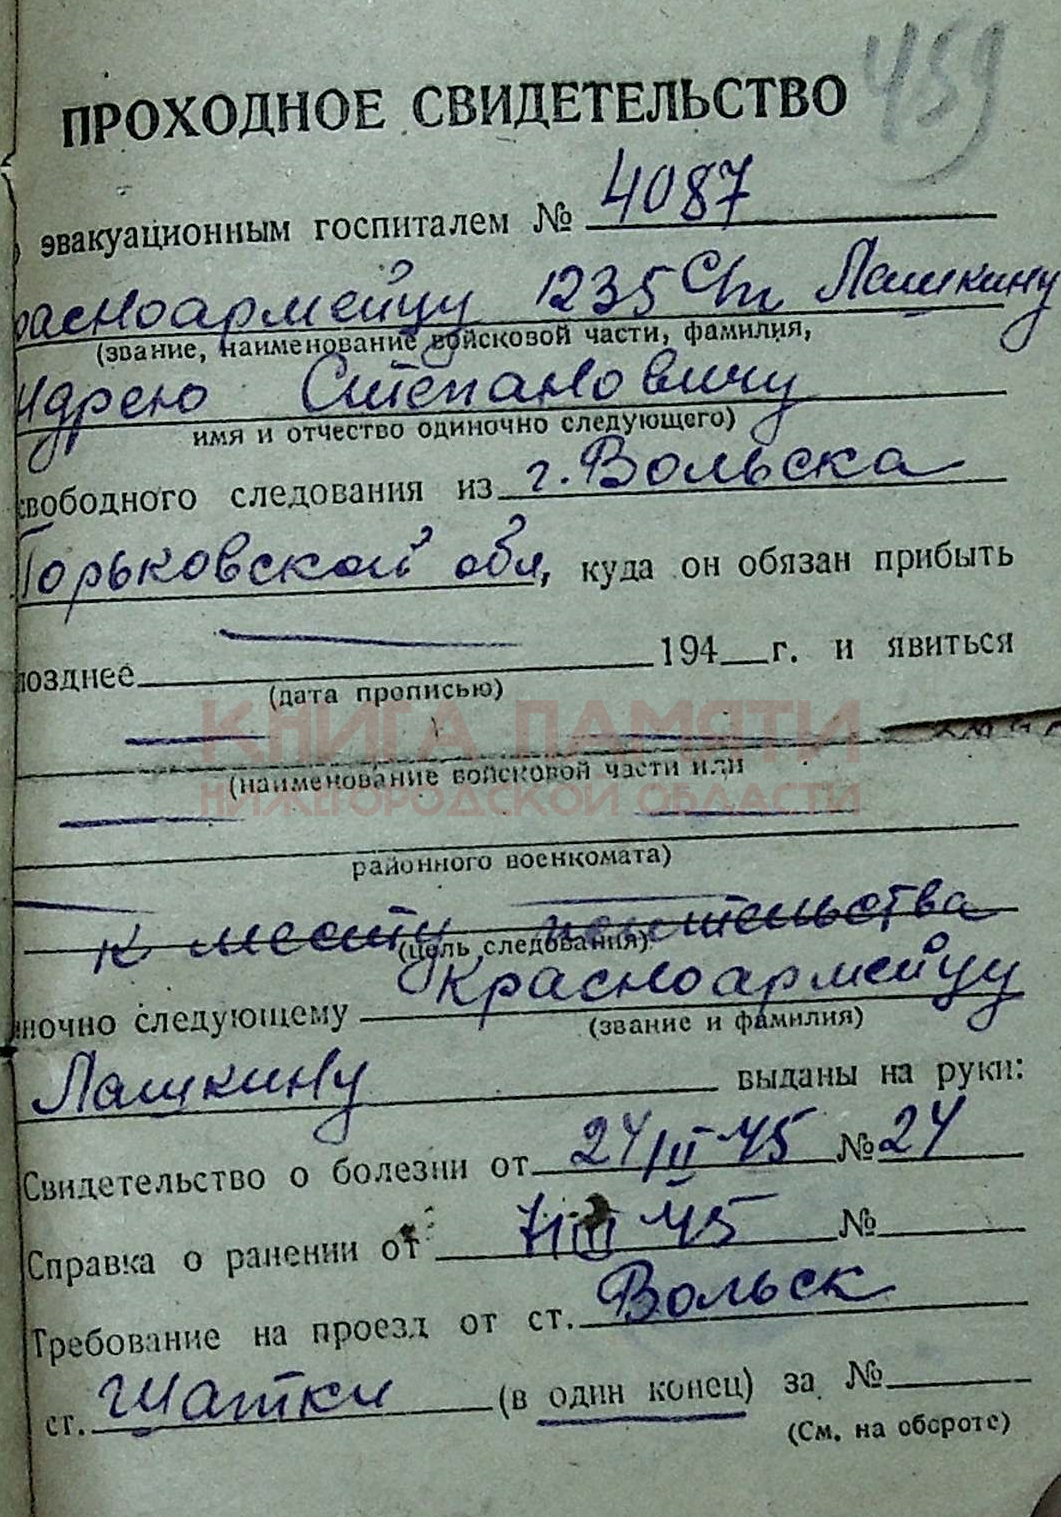 459
ПРОХОДНОЕ СВИДЕТЕЛЬСТВО
эвакуационным госпиталем № 4087
расноармейцу 1235 Сп Лашкину
(звание, наименование войсковой части, фамилия,
ндрею Степановичу
имя и отчество одиночно следующего)
свободного следования из г. Вольска
Горьковской обл, куда он обязан прибыть
позднее 194 г. и явиться
(дата прописью)
КНИГА ПАМЯТИ
(наименование войсковой части или
НИЖЕГОРОДСКОЙ ОБЛАСТИ
районного военкомата)
к месту жительства
(цель следования)
ночно следующему Красноармейцу
(звание и фамилия)
Лашкину выданы на руки:
Свидетельство о болезни от 24/II 45 №24
Справка о ранении от 7/III 45 №
Требование на проезд от ст. Вольск
ст. Шатки (в один конец) за №
(См. на обороте)